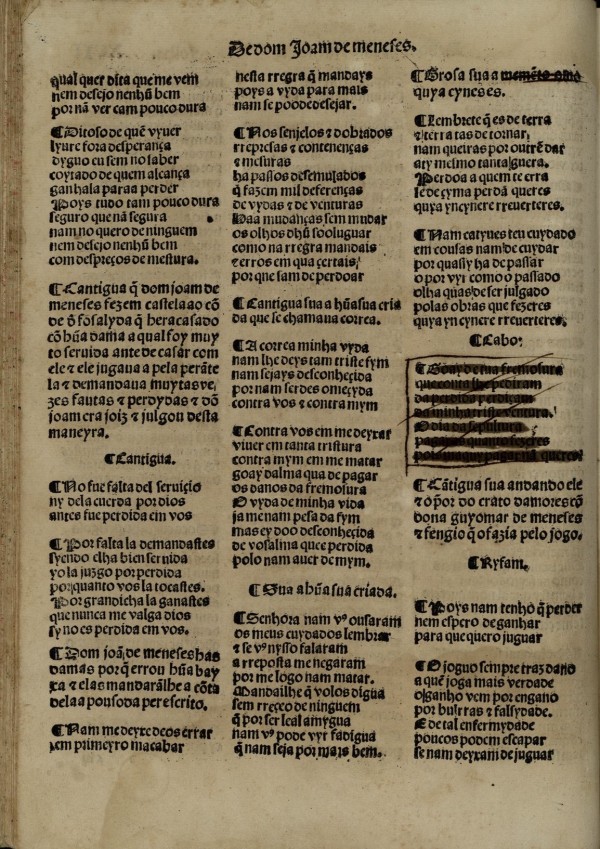 De dom Joam de meneses.
qual quer dita que me vem
nem desejo nenhũ bem
por nã ver cam pouco dura
¶Ditoso de quẽ vyuer
lyure fora desperança
dyguo eu sem no saber
coytado de quem alcança
ganhala para a perder
Poys tudo tam pouco dura
seguro que nã segura
nam no quero de ninguem
nem desejo nenhũ bem
com despreços de mestura.
¶Cantigua q̃ dom joam de
meneses fez em castela ao cõ
de d' fõsalyda q̃ hera casado
cõ hũa dama a qual foy muy
to seruida ante de casar com
ele & ele jugaua a pela perãte
la & demandaua muytas ve
zes fautas & perdydas & dõ
joam era joiz & julgou desta
maneyra.
¶Cantigua.
¶No fue falta del seruiçio
ny de la cuerda por dios
antes fue perdida em vos
¶Por falta la demandastes
syendo elha bien seruida
yo la juzgo por perdida
porquanto vos la tocastes.
Por grandicha la ganastes
que nunca me valga dios
sy no es perdida em vos.
¶Dom joã de meneses has
damas por q̃ errou hũa bay
xa & elas mandarã lhe a cõta
dela a pousoda per escrito.
¶Nam me deyxe deos errar
nem primeyro macabar
nesta rregra q̃ mandays
poys a vyda para mais
nam se poode desejar.
¶Nos senjelos & dobrados
rrepresas & contenenças
& mesuras
ha passos desemulados
q̃ fazem mil deferenças
de vydas & de venturas
Haa mudanças sem mudar
os olhos dhũ soo luguar
como na rregra mandais
& erros em qua çertais,
por que sam de perdoar
¶Cantigua sua a hũa sua cria
da que se chamaua correa.
¶A correa minha vyda
nam lhe deys tam triste fym
nam sejays desconheçida
por nam ser des omeçyda
contra vos & contra mym
¶Contra vos em me deyxar
viuer em tanta tristura
contra mym em me matar
goay dalma qua de pagar
os danos da fremosura
O vyda de minha vida
ja me nam pesa da fym
mas ey doo desconheçida
de vosalma quee perdida
polo nam auer de mym.
¶Sua a hũa sua criada.
¶Senhora nam v⁹ ousaram
os meus cuydados lembrar
& se v⁹ nysso falaram
a rreposta me negaram
por me logo nam matar.
Mandailhe q̃ volos digua
sem rreçeo de ninguem
q̃ por ser leal amygua
nam v⁹ pode vyr fadigua
q̃ nam seja por mais bem.
¶Grosa sua a memẽto omo
quya çynes es.
¶Lembrete q̃ es de terra
& terra tas de tornar,
nam queiras por outrẽ dar
aty mesmo tanta guera.
Perdoa a quem te erra
se de çyma perdã queres
quya yn çynere rreuerteres.
¶Nam catyues teu cuydado
em cousas nam de cuydar
por quasy ha de passar
o por vyr como o passado
olha quas de ser julgado
polas obras que fezeres
quya yn çynere rreuerteres.
¶Cabo.
¶Goay de tua fremosura
que conta lhe pediram
da perdida perdiçam
da minha triste ventura.
O dia da sepultura
pagaras quanto fezeres
¶Cãtigua sua andando ele
& o prior do crato damores cõ
dona guyomar de meneses
& fengio q̃ o fazia pelo jogo.
¶Ryfam.
¶Poys nam tenho q̃ perder
nem espero de ganhar
para que quero juguar
¶O joguo sempre traz dano
a quẽ joga mais verdade
o ganho vem por engano
por bulrras & falsydade.
E de tal enfermydade
poucos podem escapar
se nam deyxam de juguar